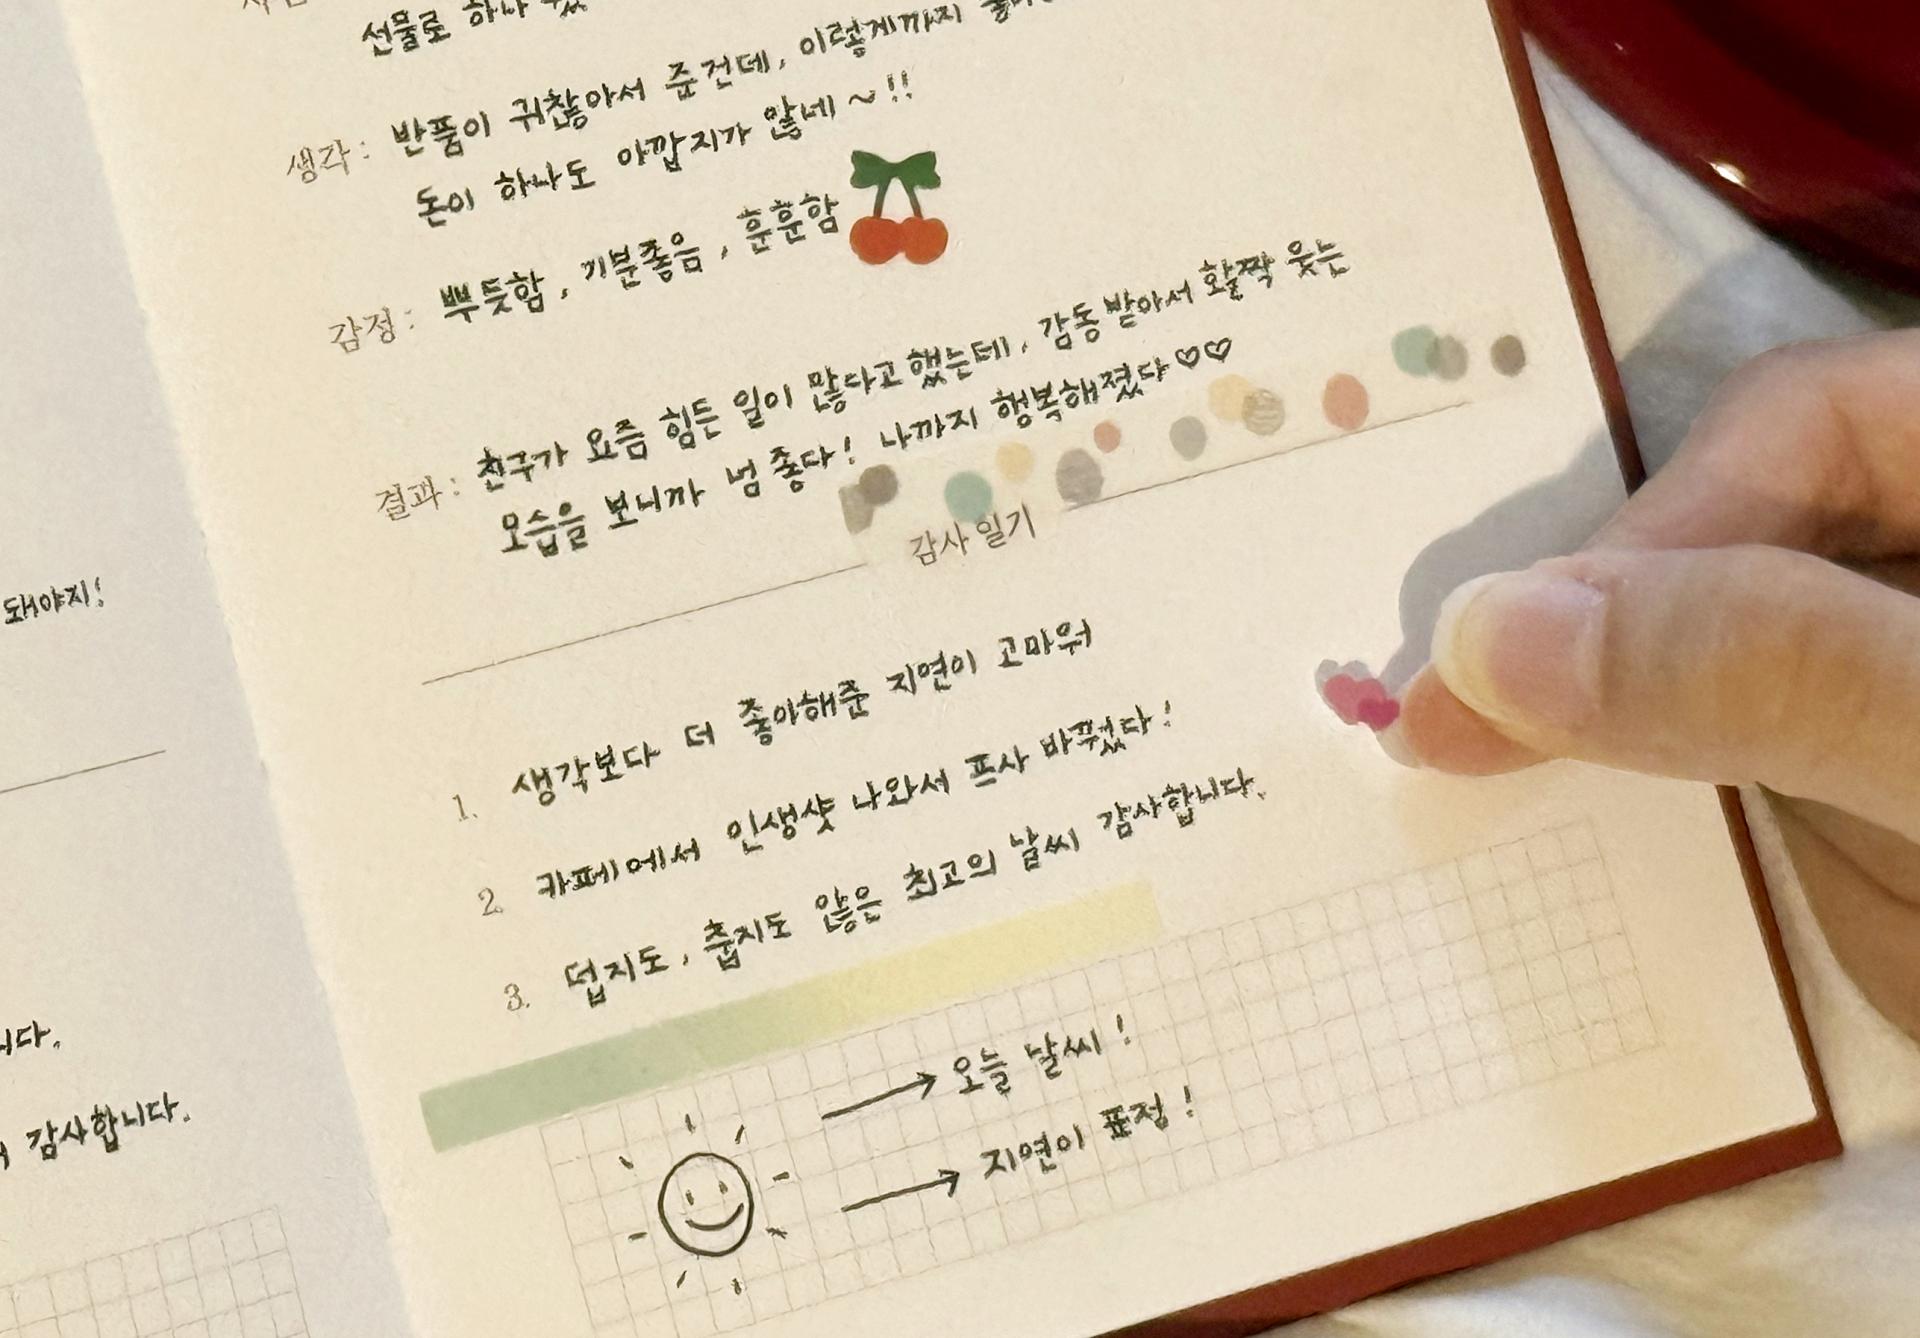 선물로 하나
생각: 반품이 귀찮아서 준건데, 이렇게까지
돈이 하나도 아깝지가 않네~!!
감정: 뿌듯함, 기분좋음, 훈훈함
결과: 친구가 요즘 힘든 일이 많다고했는데, 감동받아서 활짝 웃는
모습을 보니까 넘 좋다! 나까지 행복해졌다♡♡
감사 일기
1. 생각보다 더 좋아해준 지연이 고마워
2. 카페에서 인생샷 나와서 프사 바꿨다!
3. 덥지도, 춥지도 않은 최고의 날씨 감사합니다.
→ 오늘 날씨!
→ 지연이 표정!
돼야지!
니다.
감사합니다.